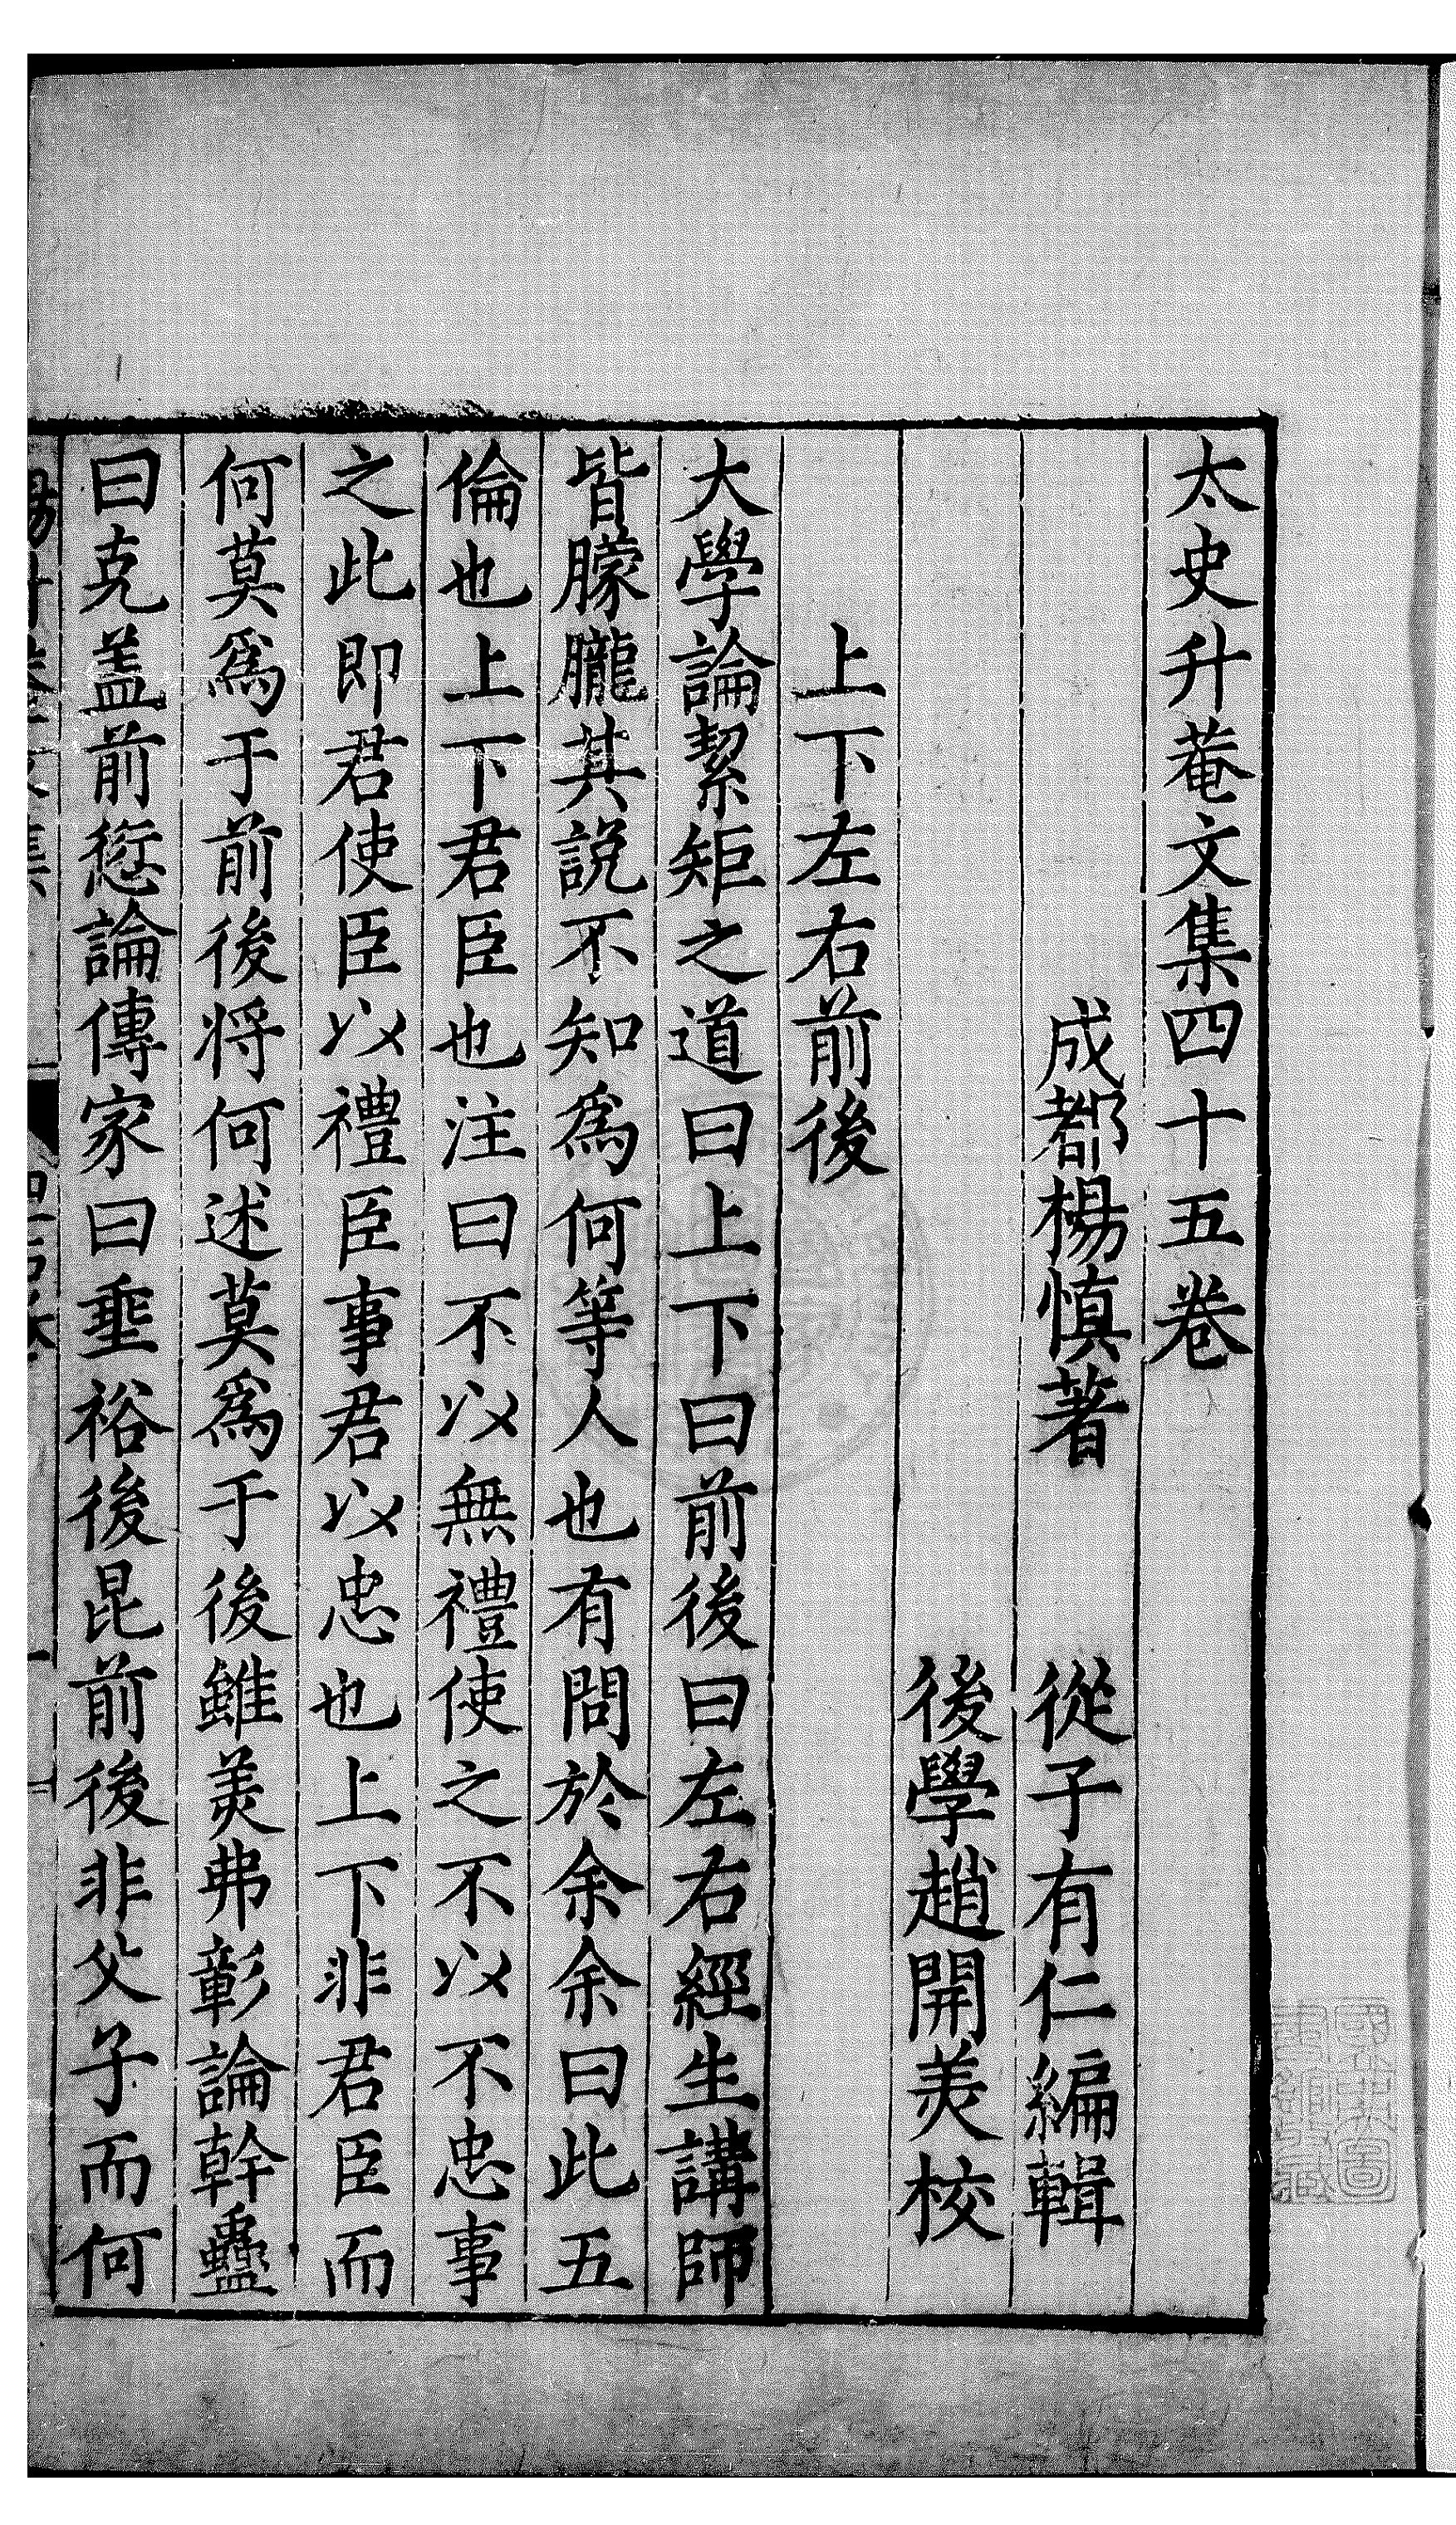 太史升菴文集四十五卷
成都楊慎著 從子有仁編輯
後學趙開美校
上下左右前後
大學論絜矩之道曰上下曰前後曰左右經生講師
皆朦朧其說不知爲何等人也有問於余余曰此五
倫也上下君臣也注曰不以無禮使之不以不忠事
之此即君使臣以禮臣事君以忠也上下非君臣而
何莫爲于前後将何述莫爲于後雖美弗彰論幹蠱
曰克盖前愆論傳家曰垂裕後昆前後非父子而何